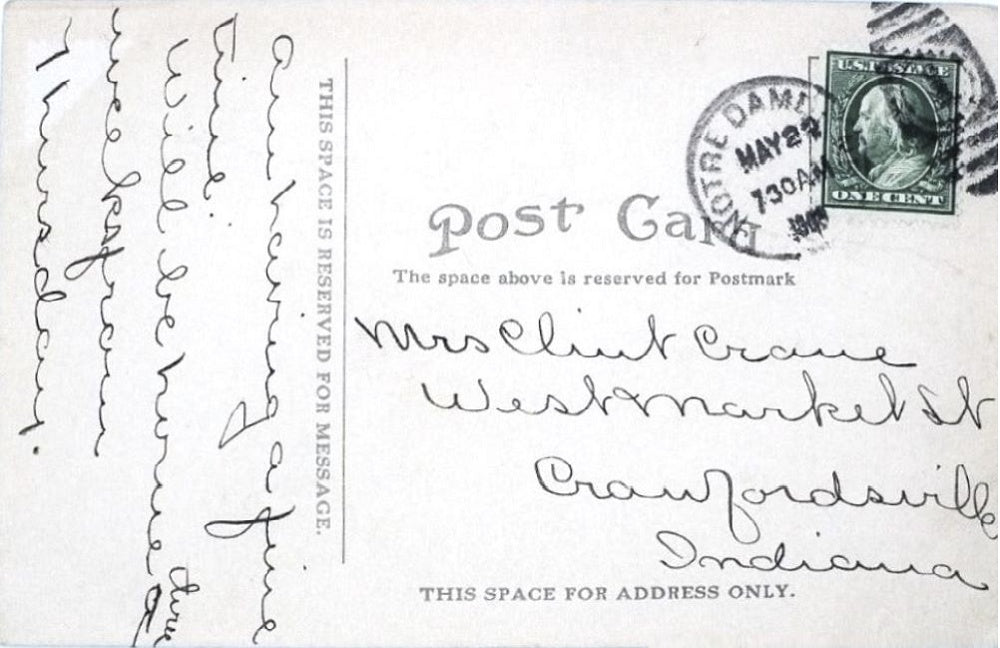 am having a fine
time.
Will be home two
weeks from
Thursday.
THIS SPACE IS RESERVED FOR MESSAGE.
U.S. POSTAGE
ONE CENT
NOTRE DAME
MAY
730 AM
Post Card
The space above is reserved for Postmark
Mrs Clint Crane
West Market St
Crawfordsville
Indiana
THIS SPACE FOR ADDRESS ONLY.